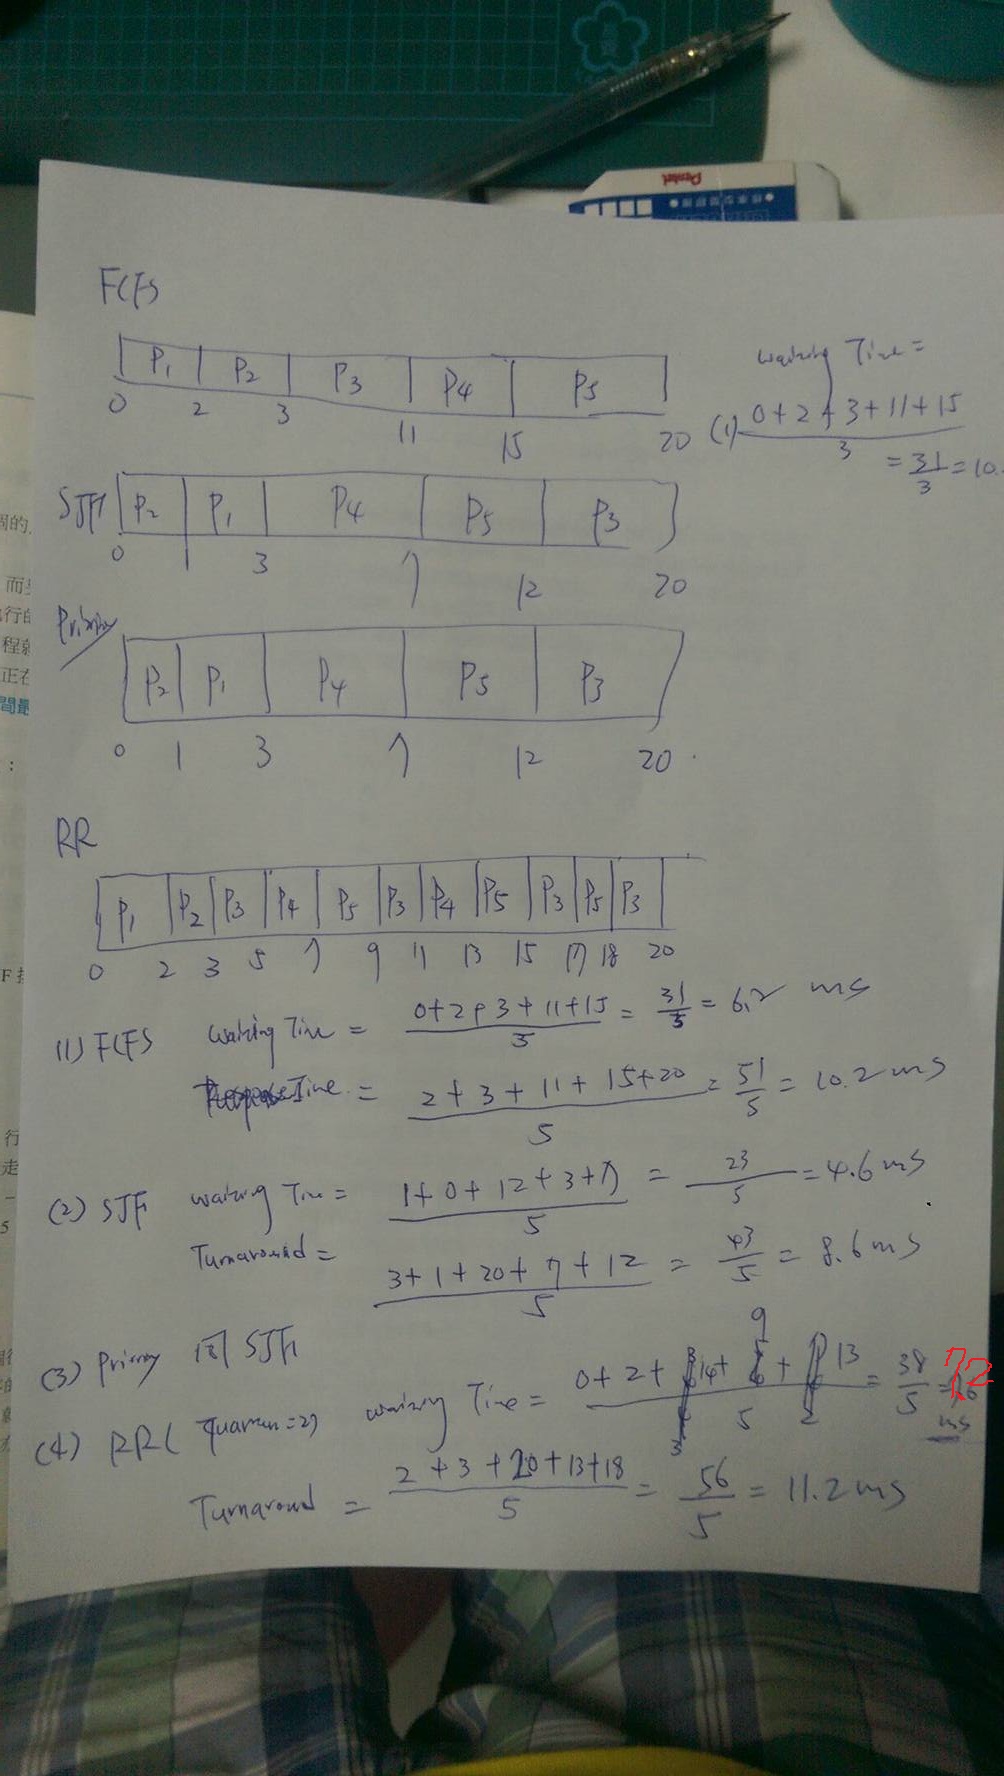 Pentel
FCFS
P1 P2 P3 P4 P5
0 2 3 11 15 20
waiting Time =
(1) 0+2+3+11+15
3
= 31/3 = 10.
SJF
P2 P1 P4 P5 P3
0 1 3 7 12 20
Priority
P2 P1 P4 P5 P3
0 1 3 7 12 20
RR
P1 P2 P3 P4 P5 P3 P4 P5 P3 P5 P3
0 2 3 5 7 9 11 13 15 17 18 20
(1) FCFS waiting Time = 0+2+3+11+15 / 5 = 31/5 = 6.2 ms
Time = 2+3+11+15+20 / 5 = 51/5 = 10.2 ms
(2) SJF waiting Time = 1+0+12+3+7 / 5 = 23/5 = 4.6 ms
Turnaround = 3+1+20+7+12 / 5 = 43/5 = 8.6 ms
(3) Priority 同 SJF
(4) RR( quantum=2) waiting Time = 0+2+ 14+ 9 + 13 / 5 = 38/5 = 7.2 ms
Turnaround = 2+3+20+13+18 / 5 = 56/5 = 11.2 ms
個的
而
行的
程就
正在
間最
:
F
行
走
5